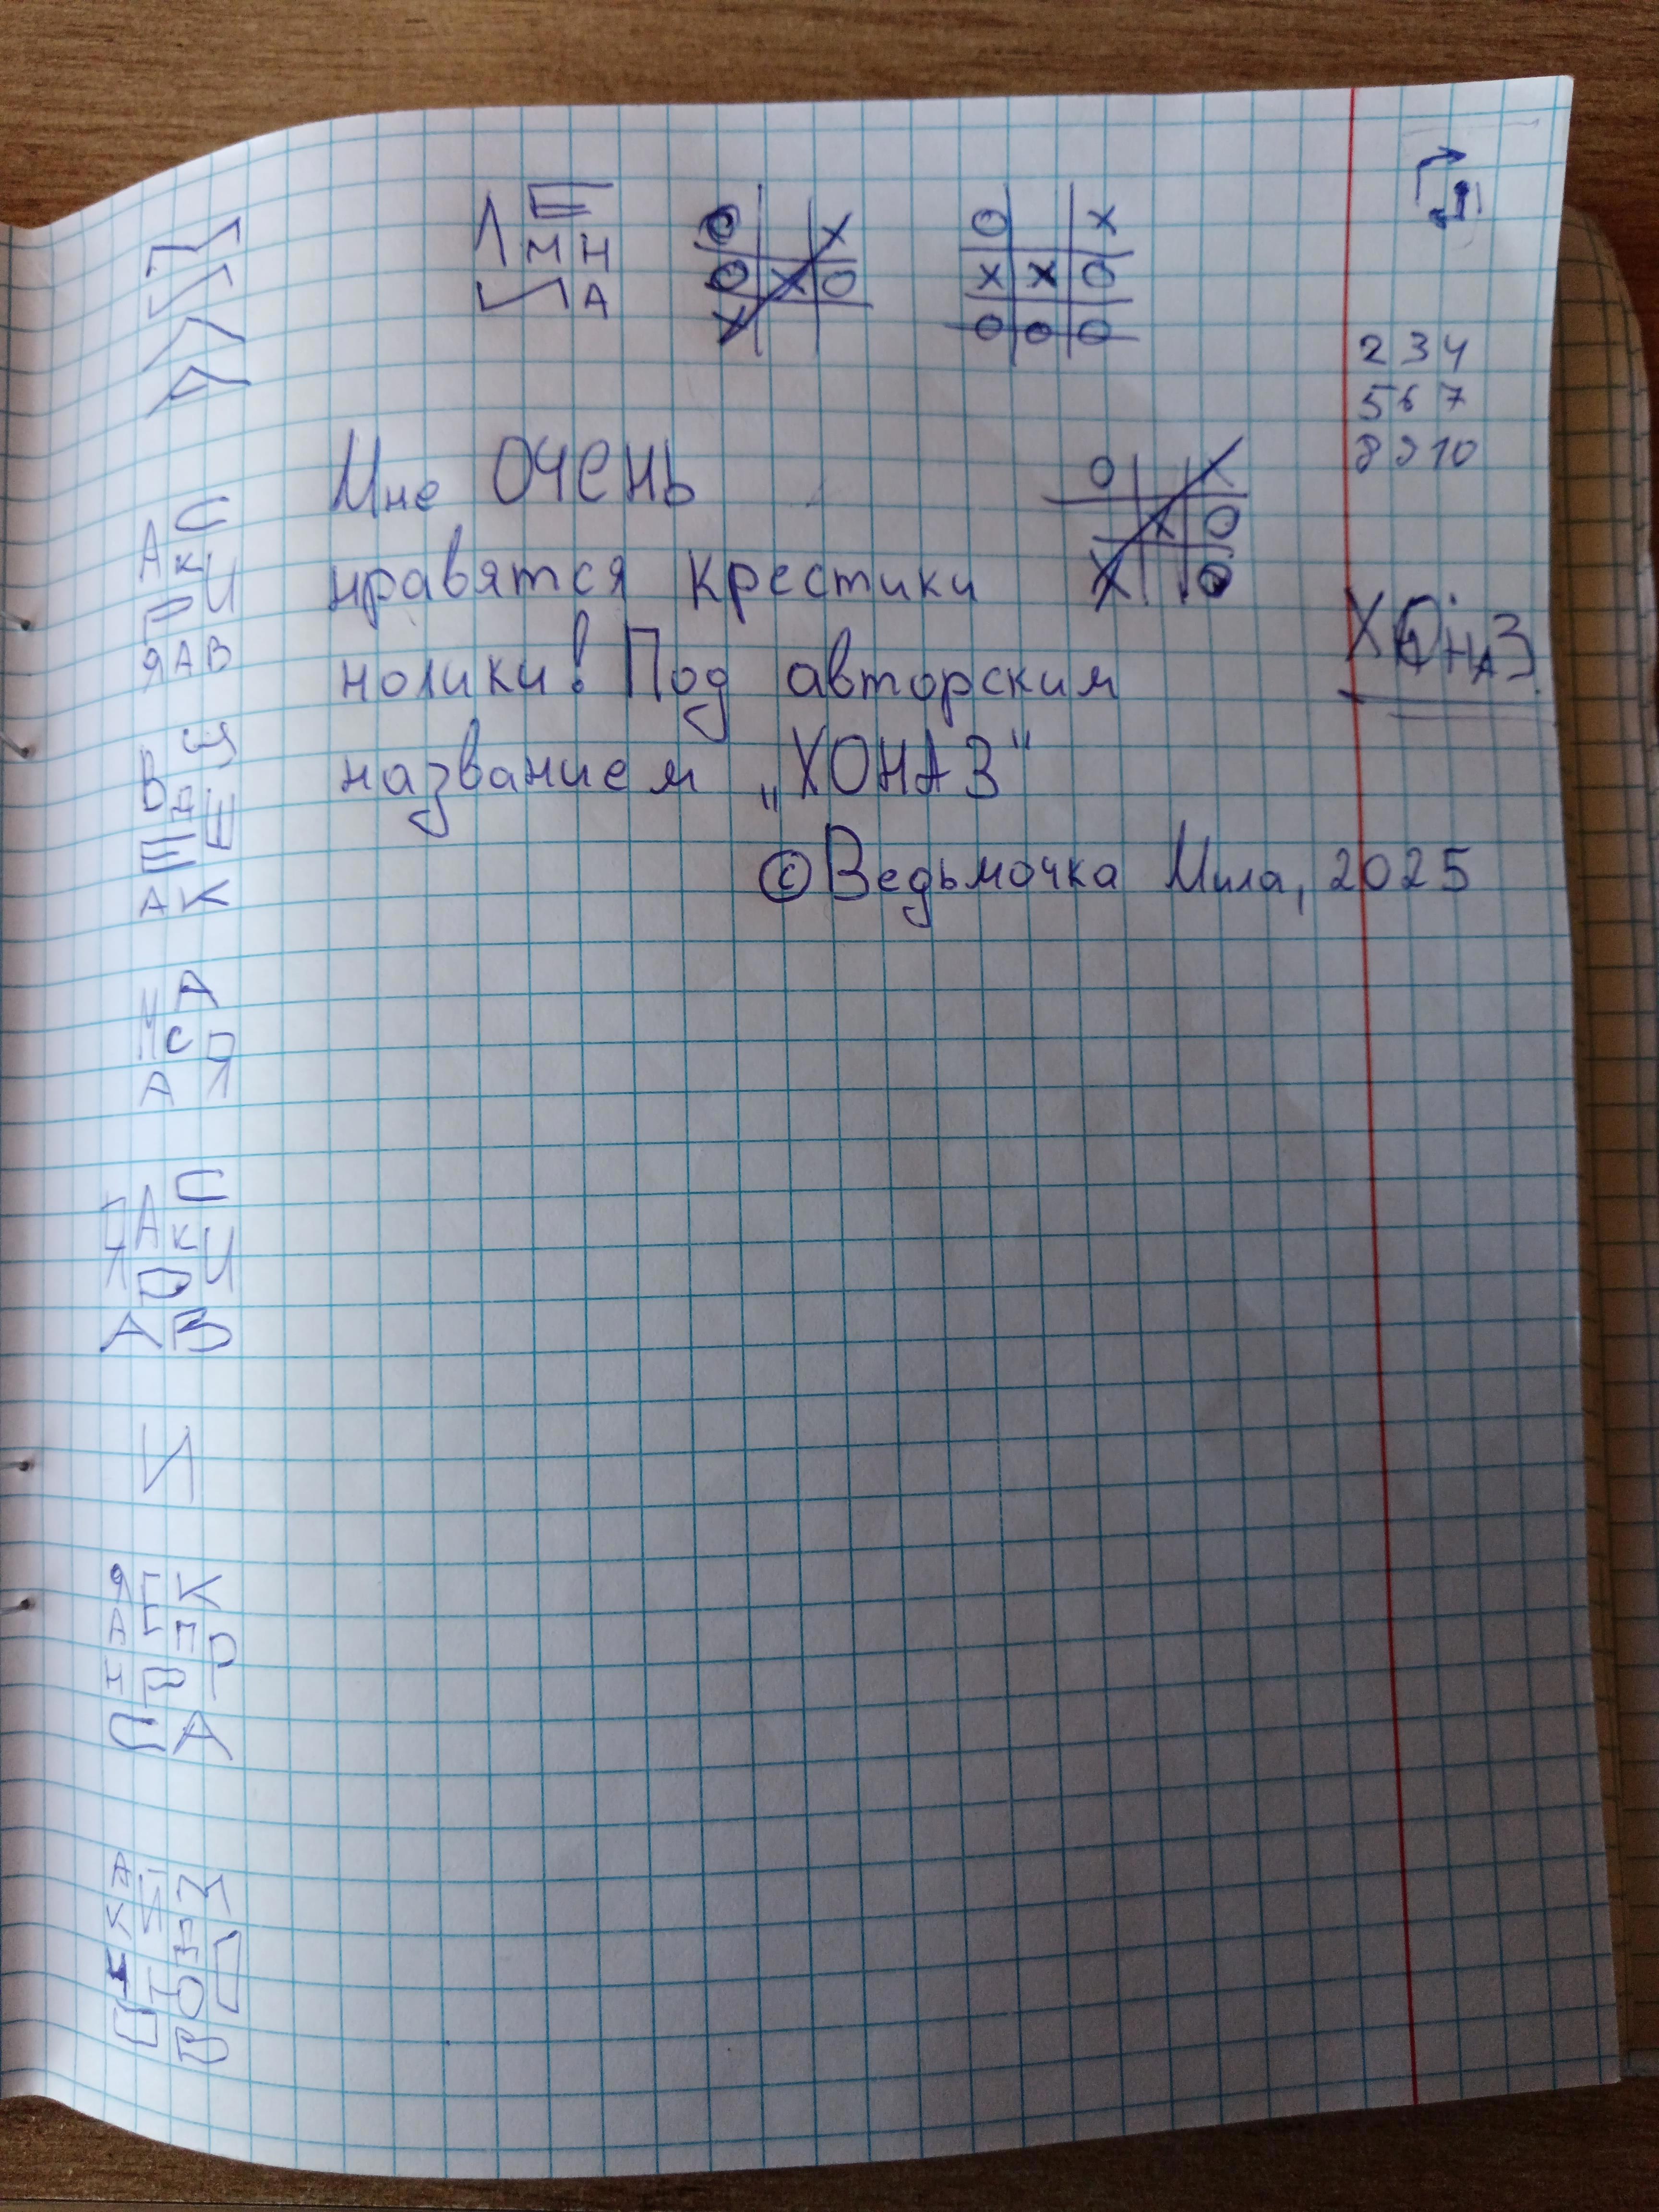 Л Е
М Н
И А
О Х
О Х О
Х
О Х
Х Х О
О О О
2 3 4
5 6 7
8 9 10
Мне ОЧЕНЬ
О Х
Х О
Х О
нравятся крестики
ХОНАЗ
нолики! Под авторским
названием „ХОНАЗ"
©Ведьмочка Мила, 2025
А С
К И
П
Я А В
Щ
В Д Е
Е
А К
А
М С
А Я
П А С
К И
Я О
А В
И
Я Е К
А П Р
Н Р
С А